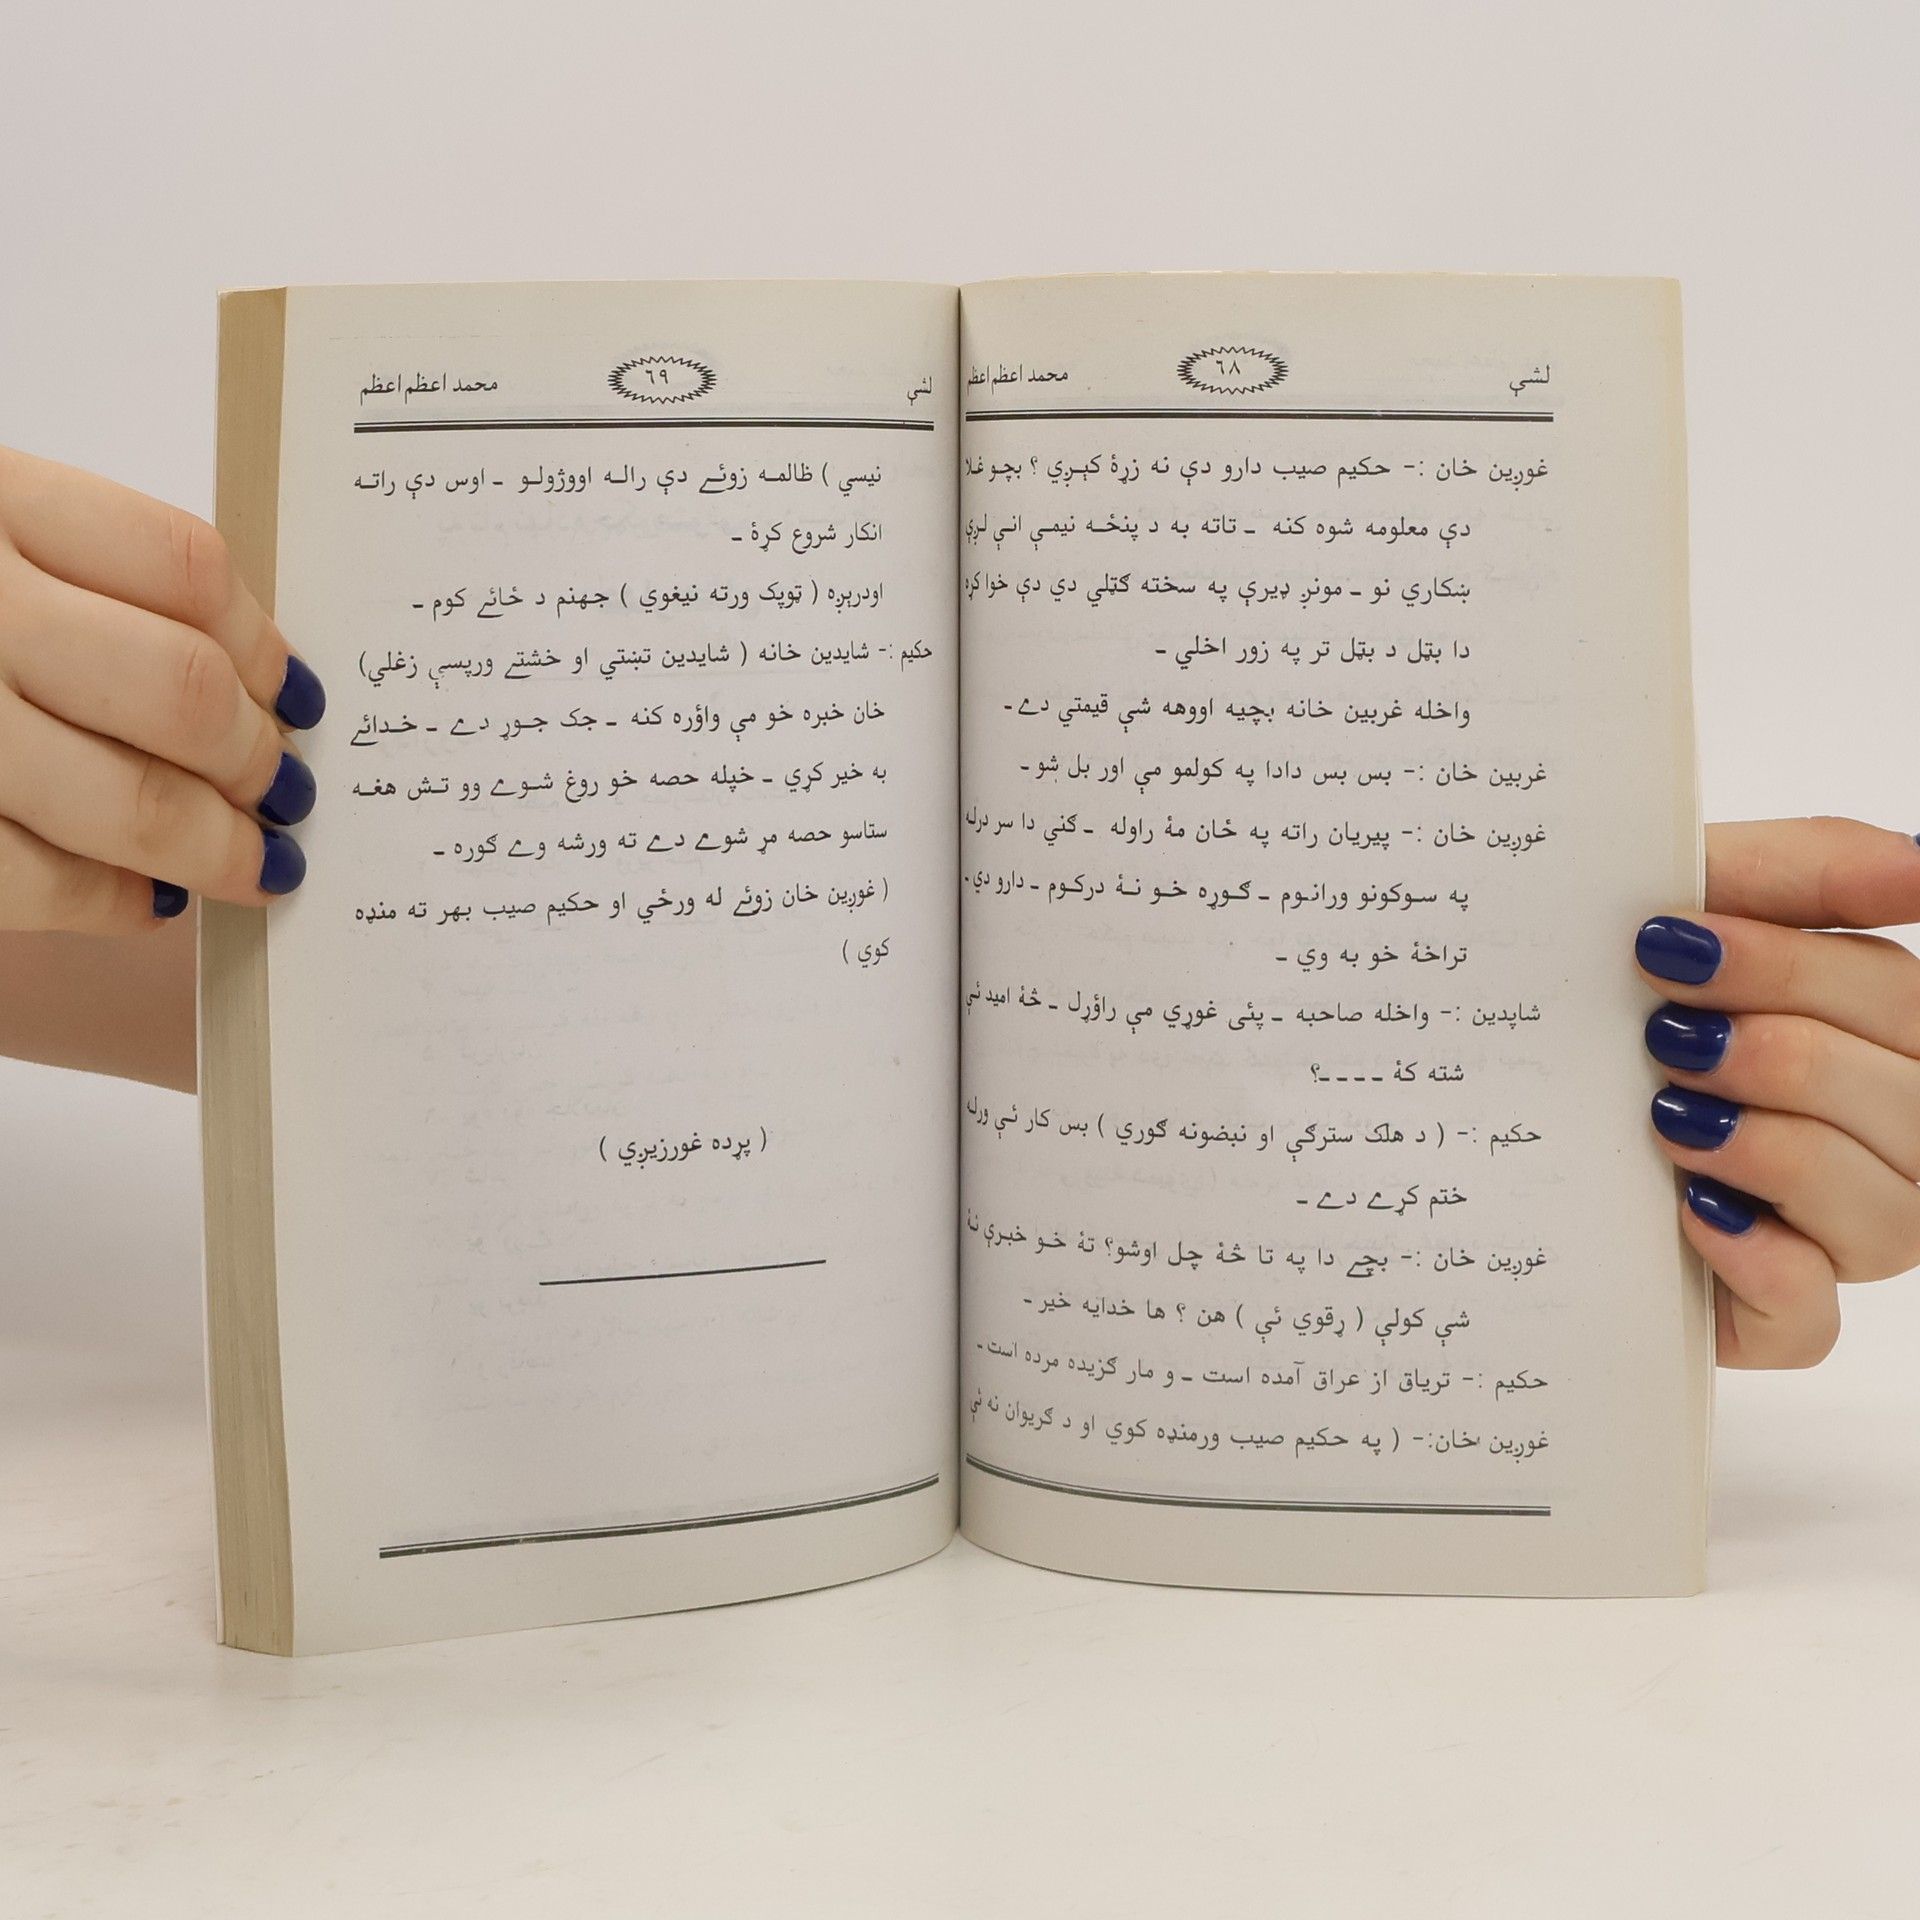 لشې ٦٨ محمد اعظم اعظم
غورږین خان :- حکیم صیب دارو دې نه زړۀ کېږي ؟ بچو غلا
دې معلومه شوه کنه ـ تاته به د پنځه نیمې انې لرې
ښکاري نو ـ مونږ ډیرې په سخته ګټلي دي دې خوا کړه
دا بټل د بټل تر په زور اخلي ـ
واخله غربین خانه بچیه اووهه شې قیمتي دے ـ
غربین خان :- بس بس دادا په کولمو مې اور بل شو ـ
غورږین خان :- پیریان راته په ځان مۀ راوله ـ ګني دا سر درله
په سوکونو ورانوم ـ ګوره خو نۀ درکوم ـ دارو دي ـ
تراخۀ خو به وي ـ
شاپدین :- واخله صاحبه ـ پئی غوړي مې راؤړل ـ څۀ امید ئې
شته کۀ ـ ـ ـ ـ؟
حکیم :- ( د هلک سترګې او نبضونه ګوري ) بس کار ئې ورله
ختم کړے دے ـ
غورږین خان :- بچے دا په تا څۀ چل اوشو؟ تۀ خو خبرې نۀ
شې کولې ( ړقوي ئې ) هن ؟ ها خدایه خیر ـ
حکیم :- تریاق از عراق آمده است ـ و مار ګزیده مرده است ـ
غورږین خان:- ( په حکیم صیب ورمنډه کوي او د ګریوان نه ئې
لشې ٦٩ محمد اعظم اعظم
نیسي ) ظالمه زوئے دې راله اووژولو ـ اوس دې راته
انکار شروع کړۀ ـ
اودرېږه ( ټوپک ورته نیغوي ) جهنم د ځائے کوم ـ
حکیم :- شایدین خانه ( شایدین تښتي او خشتے ورپسې زغلي)
خان خبره خو مې واؤره کنه ـ جک جوړ دے ـ خدائے
به خیر کړي ـ خپله حصه خو روغ شوے وو تش هغه
ستاسو حصه مړ شوے دے ته ورشه وے ګوره ـ
( غورږین خان زوئے له ورځي او حکیم صیب بهر ته منډه
کوي )
( پړده غورزیږي )